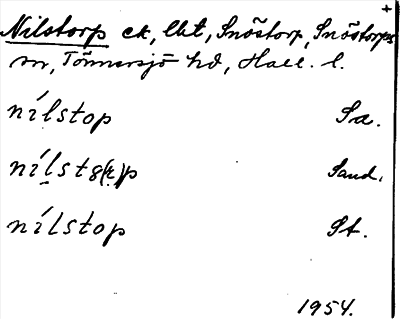 +
Nilstorp ek, lkt, Snöstorp, Snöstorps
sn, Tönnersjö hd, Hall. l.
nílstop Sa.
nílst8(r)p Sand.
nílstop St.
1954.